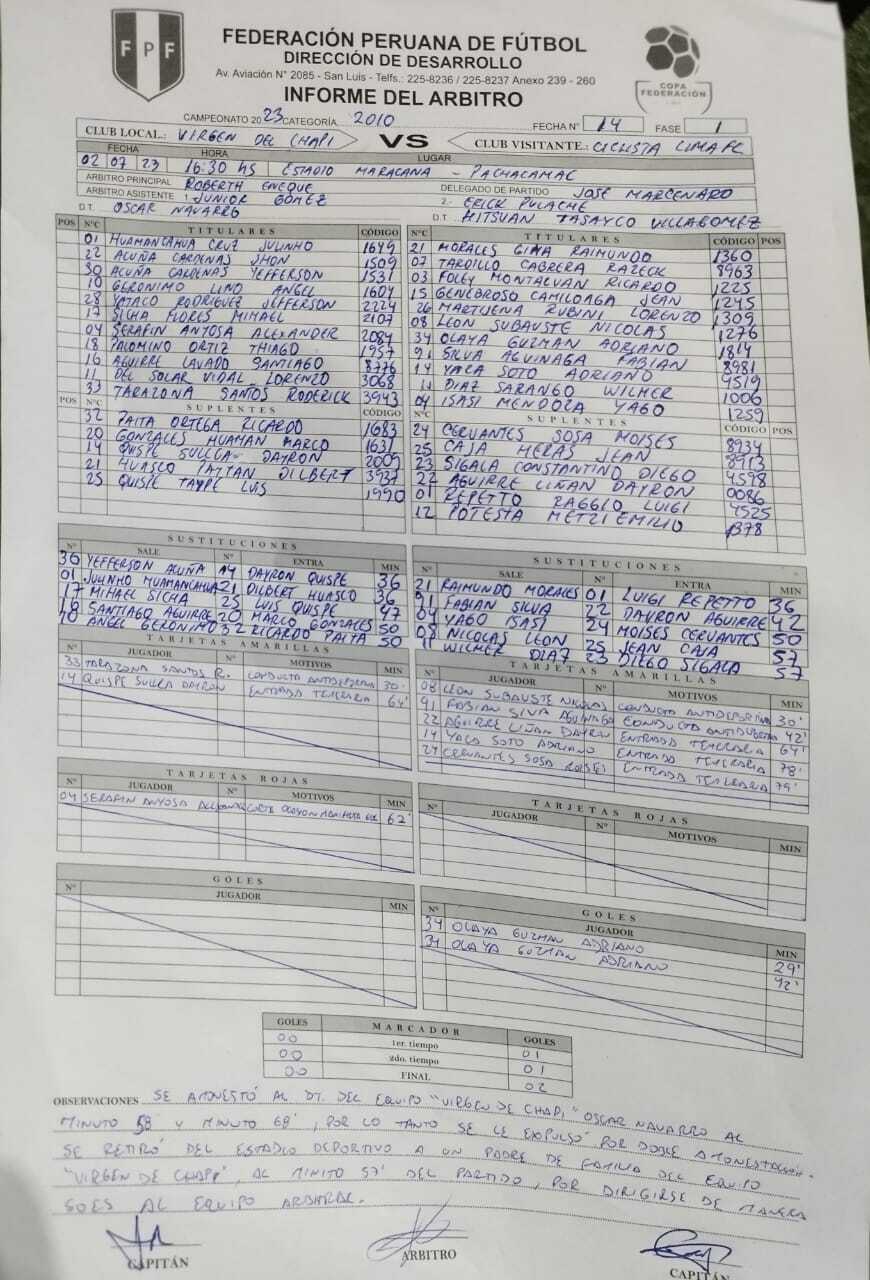 FPF
FEDERACIÓN PERUANA DE FÚTBOL
DIRECCIÓN DE DESARROLLO
Av. Aviación N° 2085 - San Luis - Telfs.: 225-8236 / 225-8237 Anexo 239 - 260
INFORME DEL ARBITRO
COPA FEDERACIÓN
CAMPEONATO 2023 CATEGORÍA 2010 FECHA N° 14 FASE 1
CLUB LOCAL.: VIRGEN DEL CHAPI VS CLUB VISITANTE.: CICLISTA LIMA FC
FECHA HORA LUGAR
02 07 23 16:30 HS ESTADIO MARACANA - PACHACAMAC
ARBITRO PRINCIPAL ROBERTH ENEQUE DELEGADO DE PARTIDO JOSE MARCENARO
ARBITRO ASISTENTE 1 JUNIOR GOMEZ 2.- ERICK PULACHE
D.T. OSCAR NAVARRO D.T. HITSUAN TASAYCO VILLAGOMEZ
POS N°C TITULARES CÓDIGO
01 HUAMANCAHUA CRUZ JULINHO 1679
22 ACUÑA CARDENAS JHON 1509
30 ACUÑA CARDENAS YEFFERSON 1531
10 GERONIMO LINO ANGEL 1604
28 YATACO RODRIGUEZ JEFFERSON 2224
17 SICHA FLORES MIHAEL 2107
04 SERAFIN ANYOSA ALEXANDER 2084
18 PALOMINO ORTIZ THIAGO 1957
16 AGUIRRE LAVADO SANTIAGO 8776
11 DEL SOLAR VIDAL LORENZO 3068
33 TARAZONA SANTOS RODERICK 3943
POS N°C SUPLENTES CÓDIGO
32 PAITA ORTEGA RICARDO 1683
20 GONZALES HUAMAN MARCO 1631
14 QUISPE SULLCA DAYRON 2009
21 HUASCO PAITAN DILBERT 3937
25 QUISPE TAYPE LUIS 1990
N°C TITULARES CÓDIGO POS
21 MORALES GIHA RAIMUNDO 1360
07 TARDILLO CABRERA RAZECK 8963
03 FOLEY MONTALVAN RICARDO 1225
15 GENEBROSO CAMILOAGA JEAN 1245
26 MARTUENA RUBINI LORENZO 1309
08 LEON SUBAUSTE NICOLAS 1276
34 OLAYA GUZMAN ADRIANO 1814
91 SILVA AGUINAGA FABIAN 8981
14 YACA SOTO ADRIANO 4519
11 DIAZ SARANGO WILMER 1006
04 ISASI MENDOZA YAGO 1259
N°C SUPLENTES CÓDIGO POS
24 CERVANTES SOSA MOISES 8934
25 CAJA HERAS JEAN 8913
23 SIGALA CONSTANTINO DIEGO 4598
22 AGUIRRE LIÑAN DAYRON 0086
01 REPETTO RAGGIO LUIGI 4525
12 POTESTA METZI EMILIO 1378
SUSTITUCIONES
N° SALE N° ENTRA MIN
30 YEFFERSON ACUÑA 14 DAYRON QUISPE 36
01 JULINHO HUAMANCAHUA 21 DILBERT HUASCO 36
17 MIHAEL SICHA 25 LUIS QUISPE 47
16 SANTIAGO AGUIRRE 20 MARCO GONZALES 50
10 ANGEL GERONIMO 32 RICARDO PAITA 50
SUSTITUCIONES
N° SALE N° ENTRA MIN
21 RAIMUNDO MORALES 01 LUIGI REPETTO 36
91 FABIAN SILVA 22 DAYRON AGUIRRE 42
04 YAGO ISASI 24 MOISES CERVANTES 50
08 NICOLAS LEON 25 JEAN CAJA 57
11 WILMER DIAZ 23 DIEGO SIGALA 57
TARJETAS AMARILLAS
N° JUGADOR MOTIVOS MIN
33 TARAZONA SANTOS R. CONDUCTA ANTIDEPORTIVA 30'
14 QUISPE SULLCA DAYRON ENTRADA TEMERARIA 64'
TARJETAS AMARILLAS
N° JUGADOR MOTIVOS MIN
08 LEON SUBAUSTE NICOLAS CONDUCTA ANTIDEPORTIVA 30'
91 FABIAN SILVA AGUINAGA CONDUCTA ANTIDEPORTIVA 42'
22 AGUIRRE LIÑAN DAYRON ENTRADA TEMERARIA 64'
14 YACA SOTO ADRIANO ENTRADA TEMERARIA 78'
24 CERVANTES SOSA MOISES ENTRADA TEMERARIA 79'
TARJETAS ROJAS
N° JUGADOR MOTIVOS MIN
04 SERAFIN ANYOSA 62'
TARJETAS ROJAS
N° JUGADOR N° MOTIVOS MIN
GOLES
N° JUGADOR MIN
GOLES
N° JUGADOR MIN
34 OLAYA GUZMAN ADRIANO 29'
34 OLAYA GUZMAN ADRIANO 42'
GOLES MARCADOR GOLES
00 1er. tiempo 01
00 2do. tiempo 01
00 FINAL 02
OBSERVACIONES SE AMONESTÓ AL DT. DEL EQUIPO "VIRGEN DE CHAPI" OSCAR NAVARRO AL
MINUTO 58' Y MINUTO 68', POR LO TANTO SE LE EXPULSÓ POR DOBLE AMONESTACIÓN.
SE RETIRÓ DEL ESTADIO DEPORTIVO A UN PADRE DE FAMILIA DEL EQUIPO
"VIRGEN DE CHAPI", AL MINITO 57' DEL PARTIDO, POR DIRIGIRSE DE MANERA
SOES AL EQUIPO ARBITRAL.
CAPITÁN ARBITRO CAPITÁN